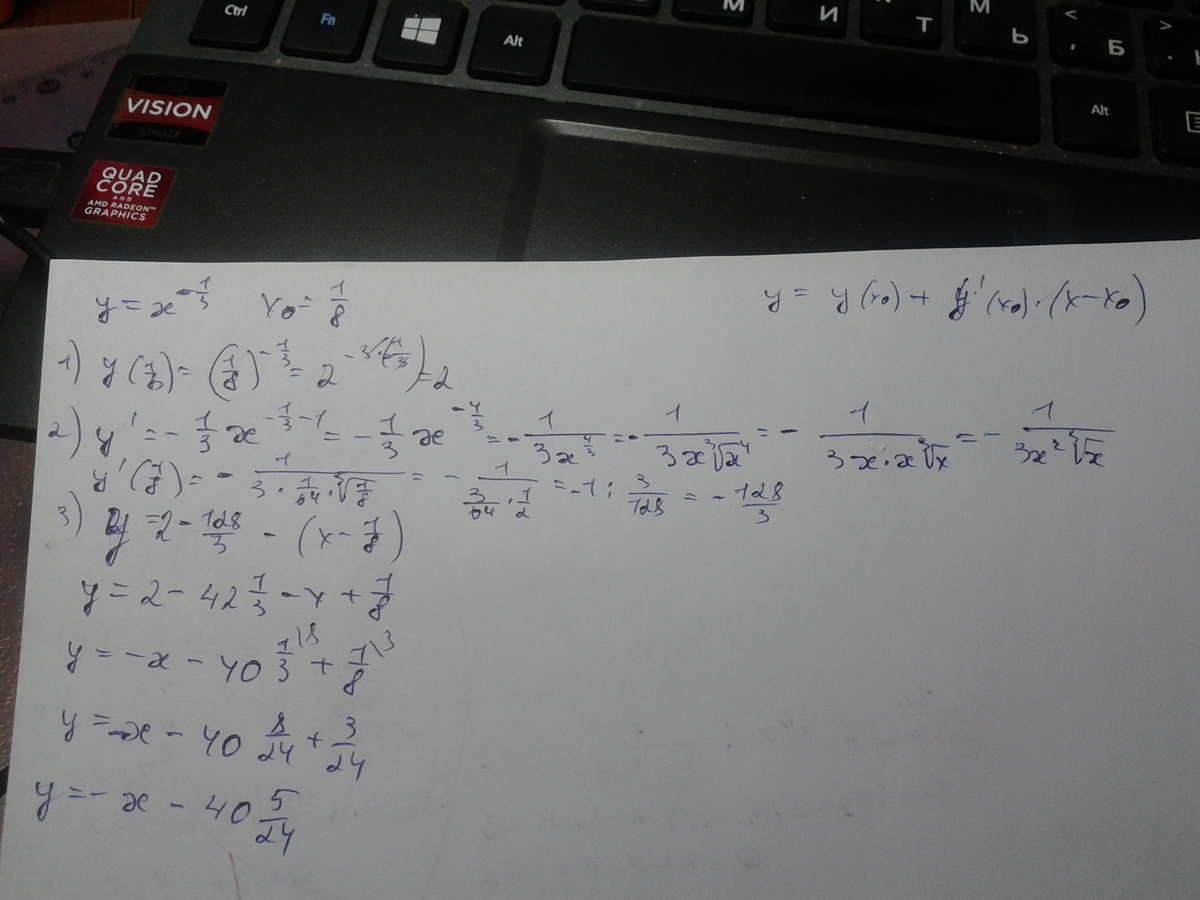 Ctrl Fn Alt М И Т М Ь < , Б > .
Alt
VISION
AMD
QUAD
CORE
AND
AMD RADEON™
GRAPHICS
y = x^(-1/3) x₀ = 1/8 y = y(x₀) + y'(x₀)·(x-x₀)
1) y(1/8) = (1/8)^(-1/3) = 2^(-3·(-1/3)) = 2
2) y' = -1/3 x^(-1/3-1) = -1/3 x^(-4/3) = -1/(3x^(4/3)) = -1/(3x∛x⁴) = -1/(3x·x∛x) = -1/(3x²∛x)
y'(1/8) = -1/(3·1/64·∛(1/8)) = -1/(3/64·1/2) = -1 : 3/128 = -128/3
3) y = 2 - 128/3 - (x - 1/8)
y = 2 - 42 1/3 - x + 1/8
y = -x - 40 1/3\8 + 1/8\3
y = -x - 40 8/24 + 3/24
y = -x - 40 5/24